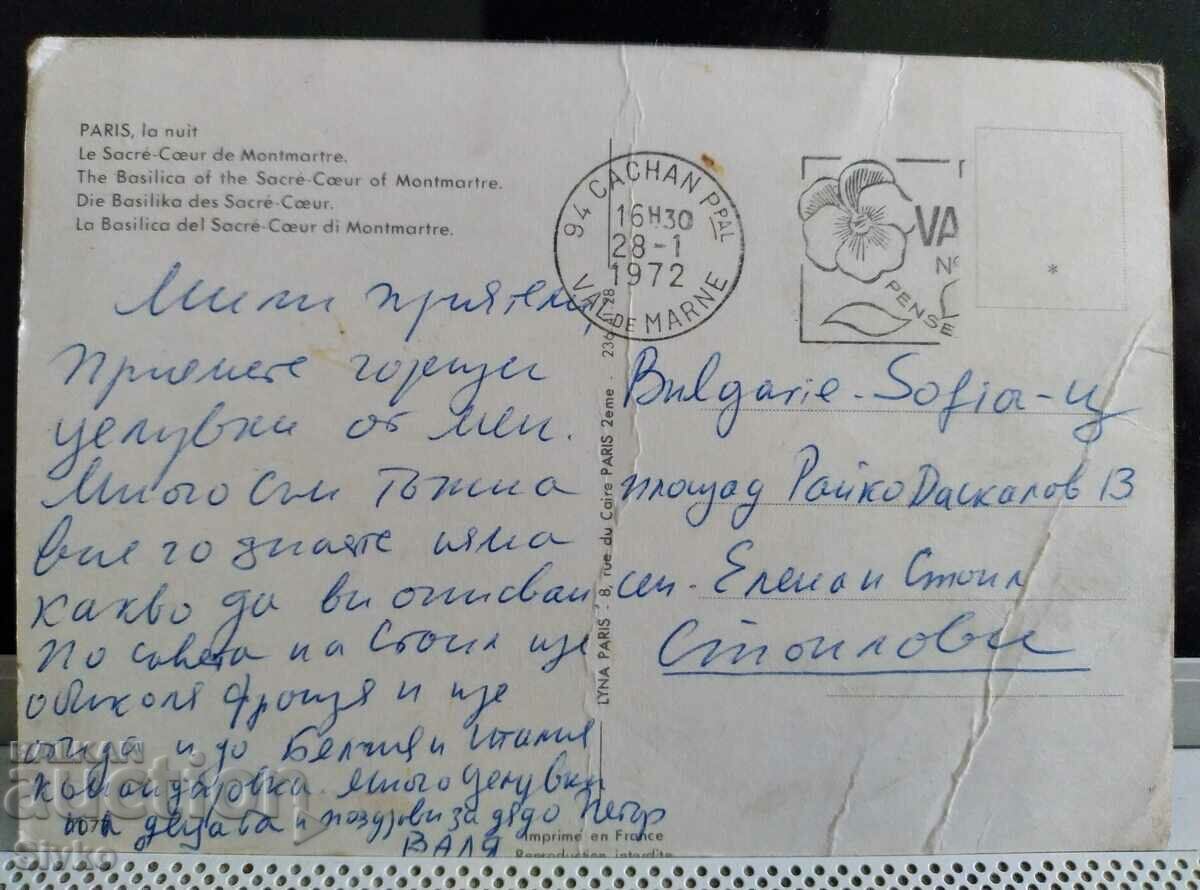 PARIS, la nuit
Le Sacré-Cœur de Montmartre.
The Basilica of the Sacré-Cœur of Montmartre.
Die Basilika des Sacré-Cœur.
La Basilica del Sacré-Cœur di Montmartre.
94 CACHAN PPAL
16H30
28-1
1972
VAL DE MARNE
VA
PENSE
Мили приятели,
Приемете горещи
целувки от мен.
Много съм тъжна
вие го знаете няма
какво да ви описвам
По съвета на Стоил ще
обиколя Франция и ще
отида и до Белгия и Италия
командировка. Много целувки
на децата и поздрави за дядо Петър
Валя
LYNA PARIS - 8, rue du Caire PARIS 2eme - 236
Bulgarie - Sofia - ц
площад Райко Даскалов 13
сем. Елена и Стоил
Стоилови
Imprimé en France
Reproduction interdite
BALKAN
auction
Slyko